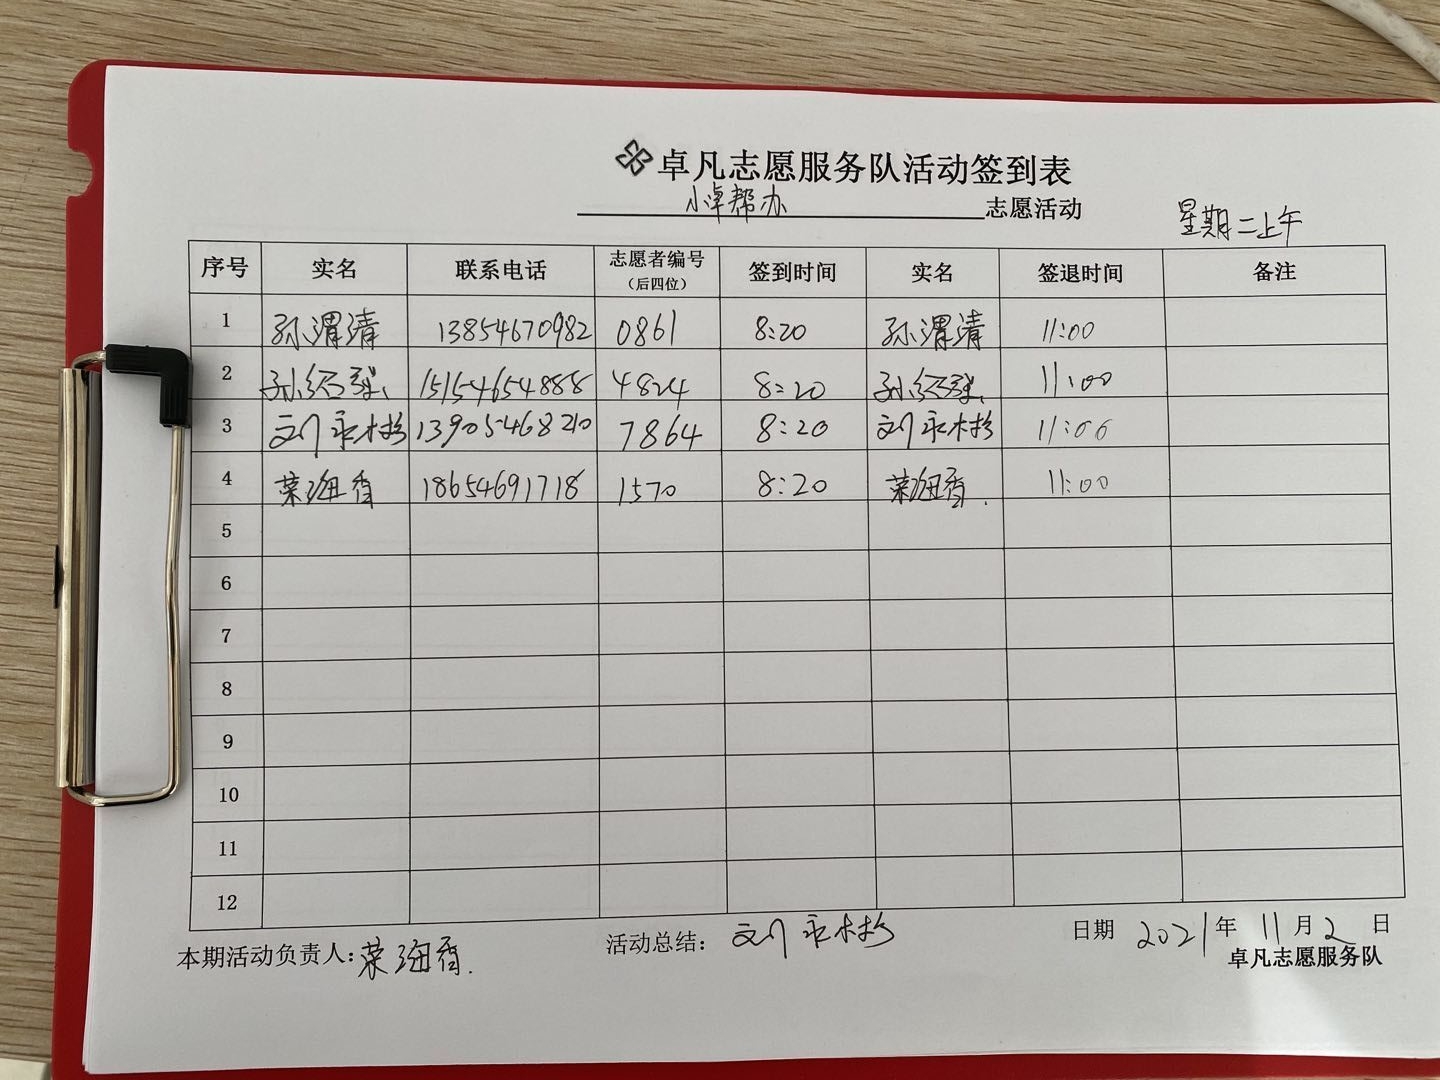 卓凡志愿服务队活动签到表
小卓帮办 志愿活动
星期二上午
序号 实名 联系电话 志愿者编号（后四位） 签到时间 实名 签退时间 备注
1 孙渭清 13854670982 0861 8:20 孙渭清 11:00
2 15154654888 4824 8:20 11:00
3 刘永杉 13905468210 7864 8:20 刘永杉 11:00
4 荣海香 18654691718 1570 8:20 荣海香 11:00
5
6
7
8
9
10
11
12
本期活动负责人：荣海香 活动总结：刘永杉 日期 2021年11月2日
卓凡志愿服务队